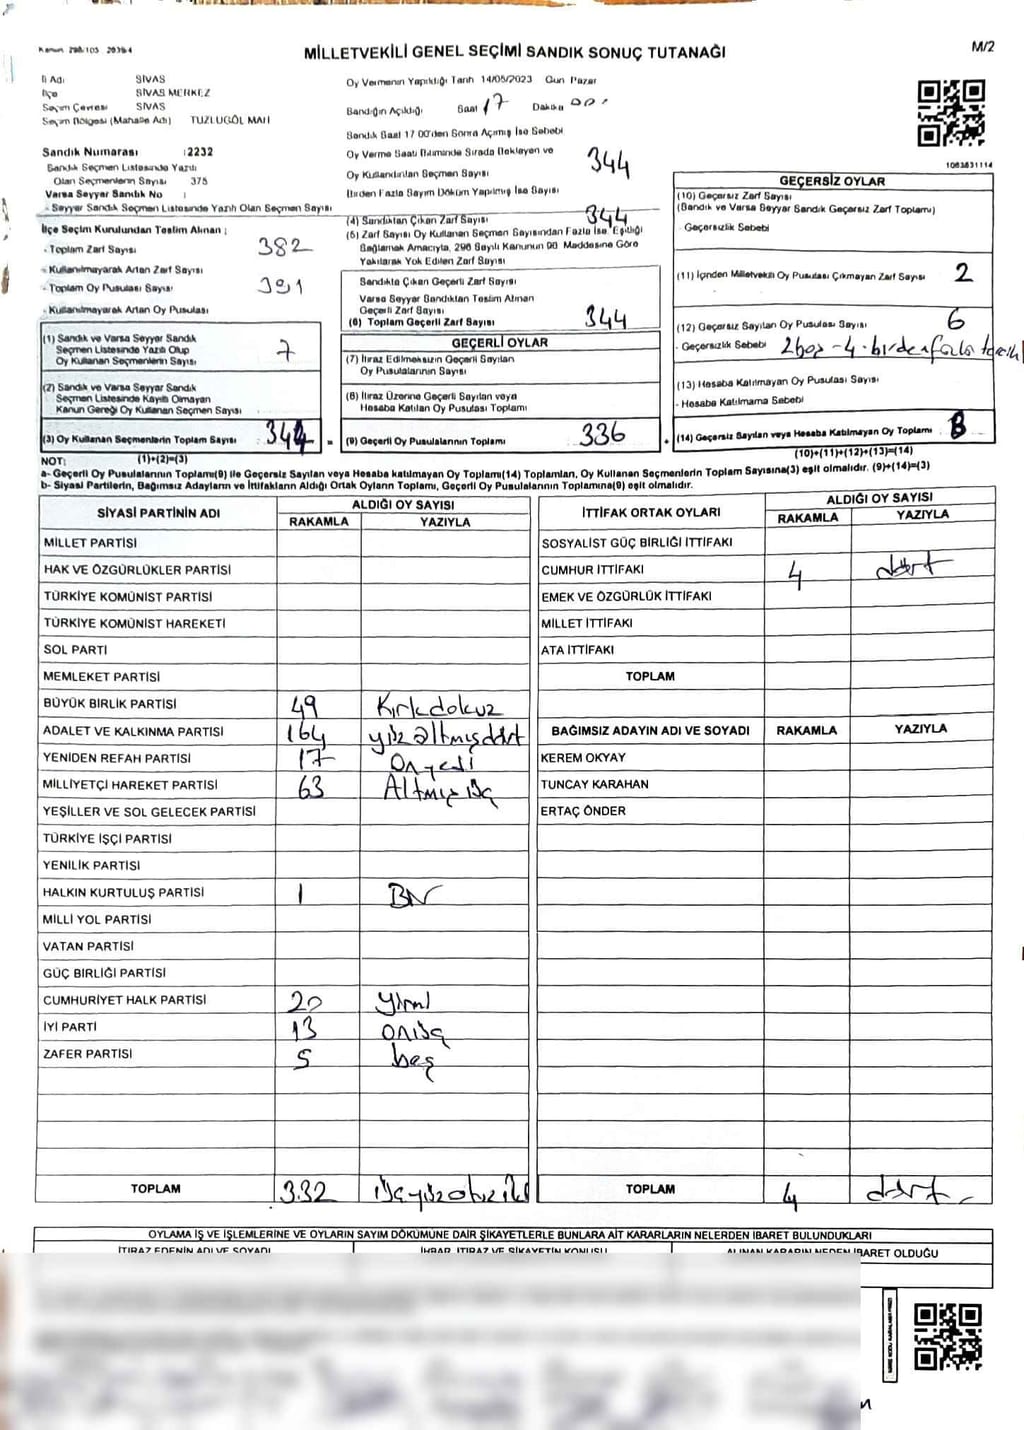 Kanun 298/103 2839/4
MİLLETVEKİLİ GENEL SEÇİMİ SANDIK SONUÇ TUTANAĞI
M/2
İl Adı SİVAS
İlçe SİVAS MERKEZ
Seçim Çevresi SİVAS
Seçim Bölgesi (Mahalle Adı) TUZLUGÖL MAH
Sandık Numarası :2232
Sandık Seçmen Listesinde Yazılı
Olan Seçmenlerin Sayısı 375
Varsa Seyyar Sandık No :
- Seyyar Sandık Seçmen Listesinde Yazılı Olan Seçmen Sayısı
İlçe Seçim Kurulundan Teslim Alınan ;
- Toplam Zarf Sayısı 382
- Kullanılmayarak Artan Zarf Sayısı
- Toplam Oy Pusulası Sayısı 391
- Kullanılmayarak Artan Oy Pusulası
(1) Sandık ve Varsa Seyyar Sandık
Seçmen Listesinde Yazılı Olup
Oy Kullanan Seçmenlerin Sayısı 7
(2) Sandık ve Varsa Seyyar Sandık
Seçmen Listesinde Kayıtlı Olmayan
Kanun Gereği Oy Kullanan Seçmen Sayısı
(3) Oy Kullanan Seçmenlerin Toplam Sayısı 344 =
(1)+(2)=(3)
Oy Vermenin Yapıldığı Tarih 14/05/2023 Gün Pazar
Sandığın Açıldığı Saat 17 Dakika 00
Sandık Saat 17 00'den Sonra Açımış İse Sebebi
Oy Verme Saati Bitiminde Sırada Bekleyen ve
Oy Kullandırılan Seçmen Sayısı 344
Birden Fazla Sayım Döküm Yapılmış İse Sayısı
(4) Sandıktan Çıkan Zarf Sayısı 344
(5) Zarf Sayısı Oy Kullanan Seçmen Sayısından Fazla İse, Eşitliği
Sağlamak Amacıyla, 298 Sayılı Kanunun 98 Maddesine Göre
Yakılarak Yok Edilen Zarf Sayısı
Sandıkta Çıkan Geçerli Zarf Sayısı
Varsa Seyyar Sandıktan Teslim Alınan
Geçerli Zarf Sayısı
(6) Toplam Geçerli Zarf Sayısı 344
GEÇERLİ OYLAR
(7) İtiraz Edilmeksizin Geçerli Sayılan
Oy Pusulalarının Sayısı
(8) İtiraz Üzerine Geçerli Sayılan veya
Hesaba Katılan Oy Pusulası Toplamı
(9) Geçerli Oy Pusulalarının Toplamı 336 +
1083831114
GEÇERSİZ OYLAR
(10) Geçersiz Zarf Sayısı
(Sandık ve Varsa Seyyar Sandık Geçersiz Zarf Toplamı)
- Geçersizlik Sebebi
(11) İçinden Milletvekili Oy Pusulası Çıkmayan Zarf Sayısı 2
(12) Geçersiz Sayılan Oy Pusulası Sayısı 6
- Geçersizlik Sebebi 2 boş - 4 birden fazla tercih
(13) Hesaba Katılmayan Oy Pusulası Sayısı
- Hesaba Katılmama Sebebi
(14) Geçersiz Sayılan veya Hesaba Katılmayan Oy Toplamı 8
(10)+(11)+(12)+(13)=(14)
NOT:
a- Geçerli Oy Pusulalarının Toplamı(9) ile Geçersiz Sayılan veya Hesaba katılmayan Oy Toplamı(14) Toplamları, Oy Kullanan Seçmenlerin Toplam Sayısına(3) eşit olmalıdır. (9)+(14)=(3)
b- Siyasi Partilerin, Bağımsız Adayların ve İttifakların Aldığı Ortak Oyların Toplamı, Geçerli Oy Pusulalarının Toplamına(9) eşit olmalıdır.
SİYASİ PARTİNİN ADI ALDIĞI OY SAYISI
RAKAMLA YAZIYLA
MİLLET PARTİSİ
HAK VE ÖZGÜRLÜKLER PARTİSİ
TÜRKİYE KOMÜNİST PARTİSİ
TÜRKİYE KOMÜNİST HAREKETİ
SOL PARTİ
MEMLEKET PARTİSİ
BÜYÜK BİRLİK PARTİSİ 49 Kırkdokuz
ADALET VE KALKINMA PARTİSİ 164 yüz altmışdört
YENİDEN REFAH PARTİSİ 17 Onyedi
MİLLİYETÇİ HAREKET PARTİSİ 63 Altmışüç
YEŞİLLER VE SOL GELECEK PARTİSİ
TÜRKİYE İŞÇİ PARTİSİ
YENİLİK PARTİSİ
HALKIN KURTULUŞ PARTİSİ 1 Bir
MİLLİ YOL PARTİSİ
VATAN PARTİSİ
GÜÇ BİRLİĞİ PARTİSİ
CUMHURİYET HALK PARTİSİ 20 yirmi
İYİ PARTİ 13 onüç
ZAFER PARTİSİ 5 beş
TOPLAM 332 üçyüzotuziki
İTTİFAK ORTAK OYLARI ALDIĞI OY SAYISI
RAKAMLA YAZIYLA
SOSYALİST GÜÇ BİRLİĞİ İTTİFAKI
CUMHUR İTTİFAKI 4 dört
EMEK VE ÖZGÜRLÜK İTTİFAKI
MİLLET İTTİFAKI
ATA İTTİFAKI
TOPLAM
BAĞIMSIZ ADAYIN ADI VE SOYADI RAKAMLA YAZIYLA
KEREM OKYAY
TUNCAY KARAHAN
ERTAÇ ÖNDER
TOPLAM 4 dört
OYLAMA İŞ VE İŞLEMLERİNE VE OYLARIN SAYIM DÖKÜMÜNE DAİR ŞİKAYETLERLE BUNLARA AİT KARARLARIN NELERDEN İBARET BULUNDUKLARI
İTİRAZ EDENİN ADI VE SOYADI İHBAR, İTİRAZ VE ŞİKAYETİN KONUSU ALINAN KARARIN NEDEN İBARET OLDUĞU